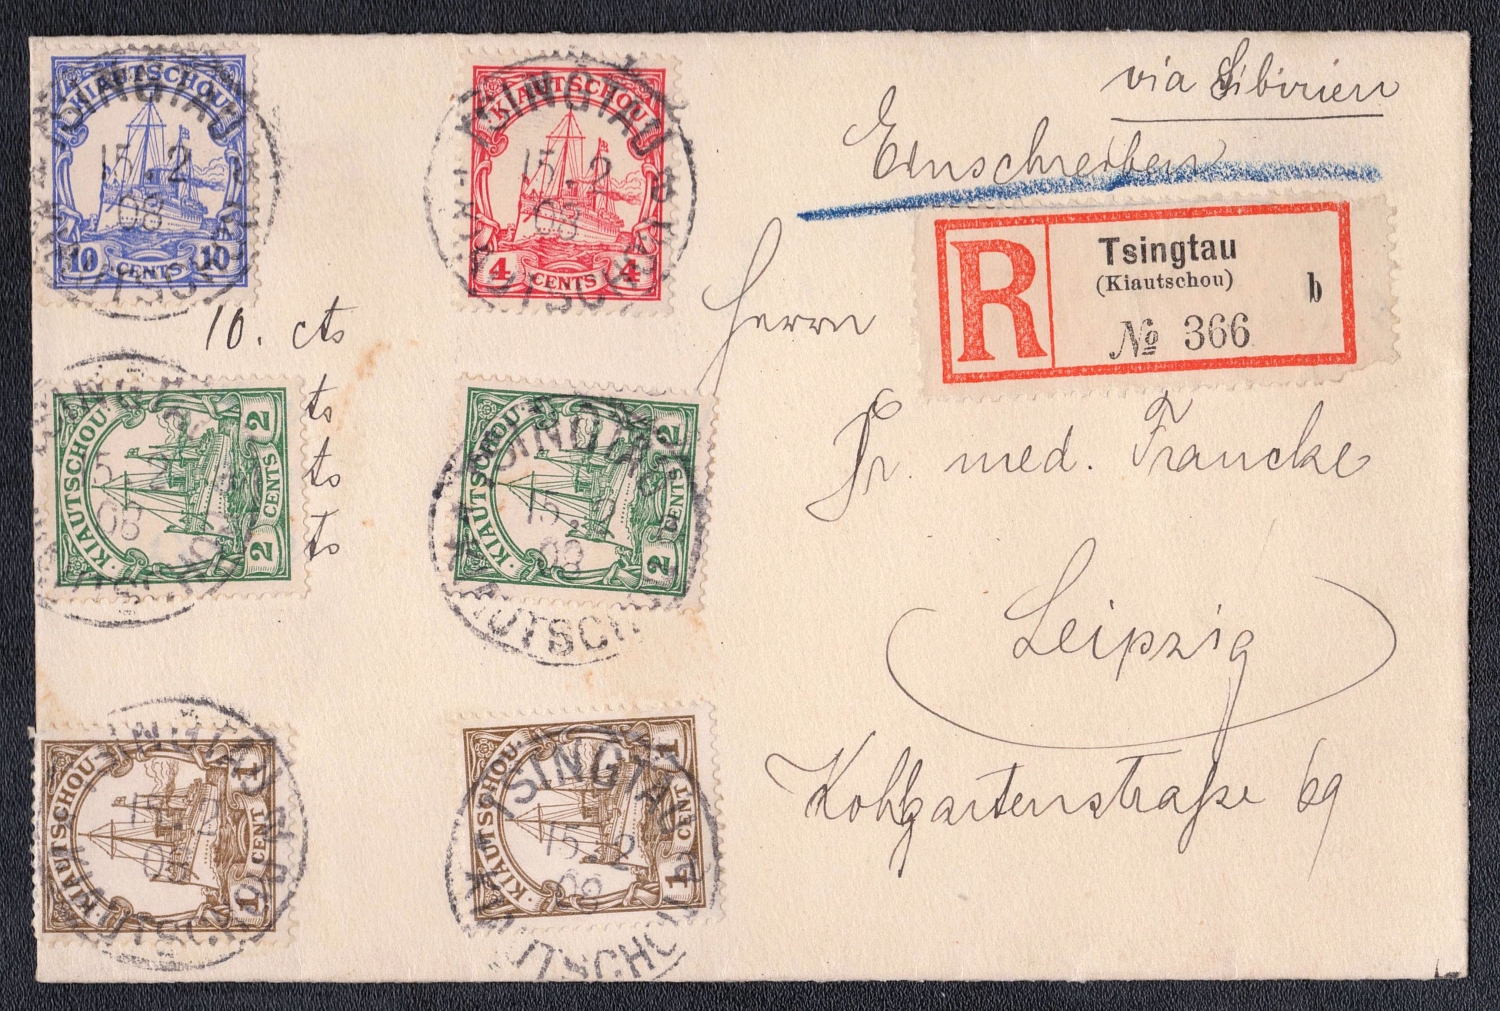 via Sibirien
Einschreiben
R
Tsingtau
(Kiautschou)
b
№ 366
Herrn
Dr. med. Francke
Leipzig
Kohlgartenstraße 69
KIAUTSCHOU
10 CENTS 10
TSINGTAU
15.2
08
KIAUTSCHOU
10. cts
ts
ts
ts
KIAUTSCHOU
4 CENTS 4
TSINGTAU
15.2
08
KIAUTSCHOU
KIAUTSCHOU
2 CENTS 2
TSINGTAU
08
KIAUTSCHOU
2 CENTS 2
TSINGTAU
15.2
08
KIAUTSCHOU
1 CENT 1
TSINGTAU
15.2
KIAUTSCHOU
KIAUTSCHOU
1 CENT 1
TSINGTAU
15.2
08
KIAUTSCHOU